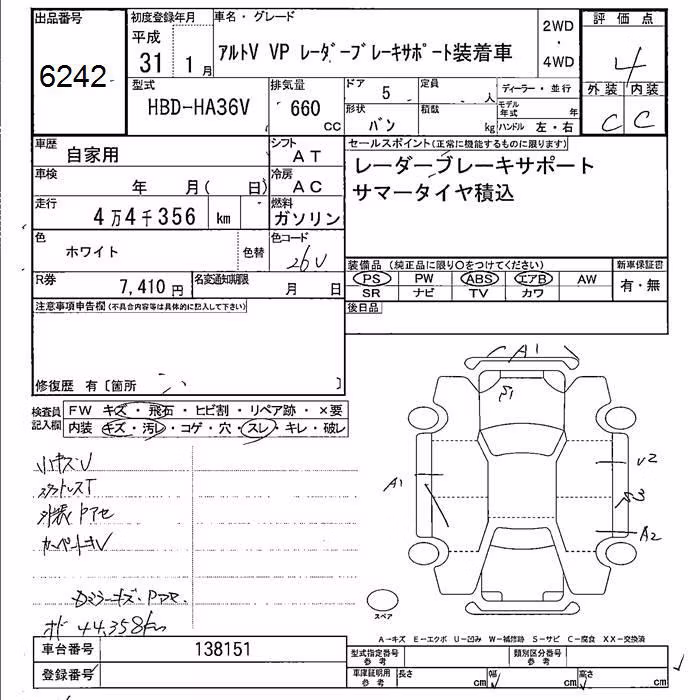 出品番号 6242
初度登録年月 平成 31 1月
車名・グレード アルトV VP レーダーブレーキサポート装着車
2WD ・ 4WD
評価点 4
型式 HBD-HA36V
排気量 660 cc
ドア 5 定員 人
形状 バン 積載 kg
ディーラー・並行
モデル年式 年
ハンドル 左・右
外装 内装
C C
車歴 自家用
シフト AT
車検 年 月( 日)
冷房 AC
走行 4万4千356 km
燃料 ガソリン
色 ホワイト 色替
色コード 26U
R券 7,410円
名変通知期限 月 日
セールスポイント(正常に機能するものに限ります)
レーダーブレーキサポート
サマータイヤ積込
装備品 (純正品に限り○をつけてください)
PS PW ABS エアB AW
SR ナビ TV カワ
新車保証書 有・無
後日品
注意事項申告欄(不具合内容等は具体的に記入して下さい)
修復歴 有〔箇所 〕
検査員記入欄
FW キズ・飛石・ヒビ割・リペア跡・×要
内装 キズ・汚レ・コゲ・穴・スレ・キレ・破レ
小キズV
外装Pアセ
カーペットキV
44,358km
A1
A1
U2
A2
スペア
A-キズ E-エクボ U-凹み W-補修跡 S-サビ C-腐食 XX-交換済
車台番号 138151
登録番号
型式指定番号 参考
類別区分番号 参考
車庫証明用 参考 長さ cm 幅 cm 高さ cm